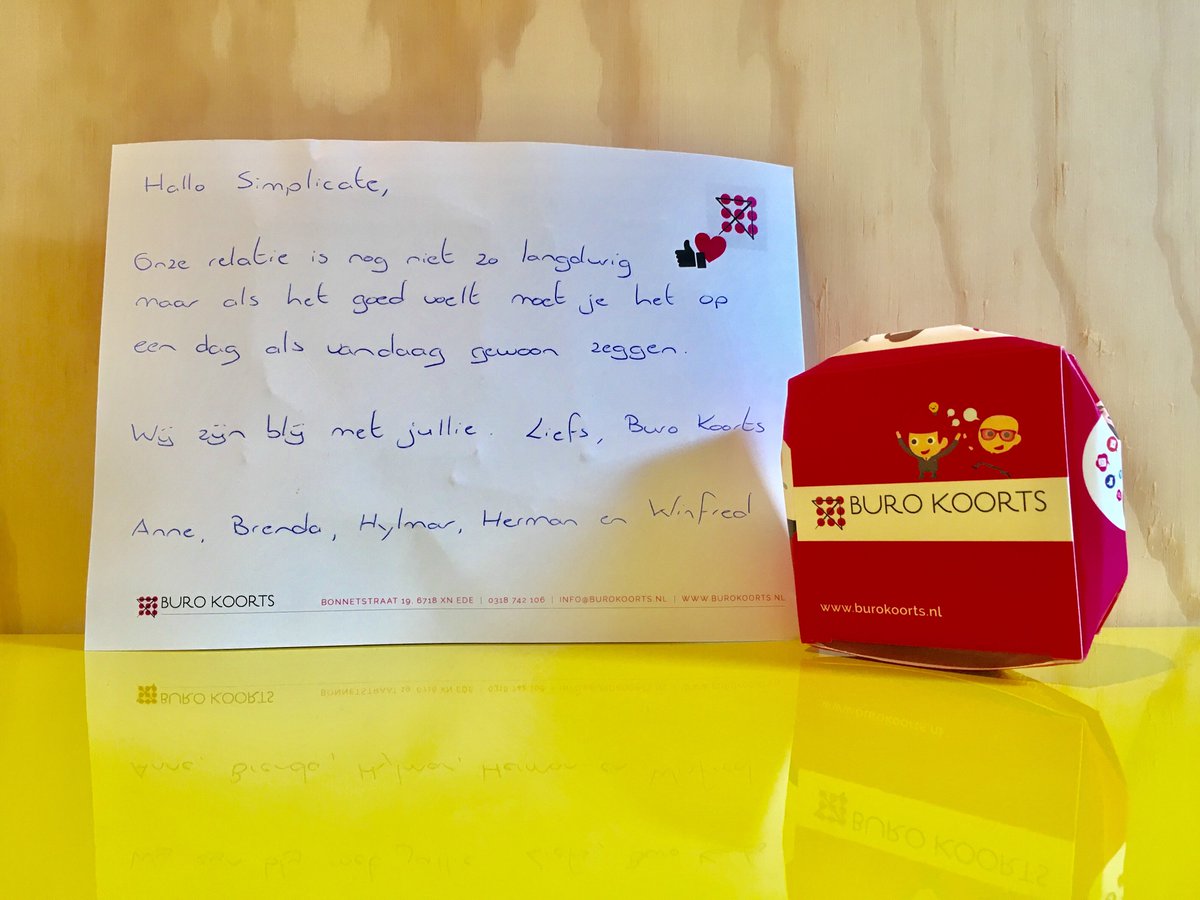 Hallo Simplicate,
Onze relatie is nog niet zo langdurig
maar als het goed voelt moet je het op
een dag als vandaag gewoon zeggen.
Wij zijn blij met jullie. Liefs, Buro Koorts
Anne, Brenda, Hylmar, Herman en Winfred
BURO KOORTS
BONNETSTRAAT 19, 6718 XN EDE | 0318 742 106 | INFO@BUROKOORTS.NL | WWW.BUROKOORTS.NL
BURO KOORTS
www.burokoorts.nl